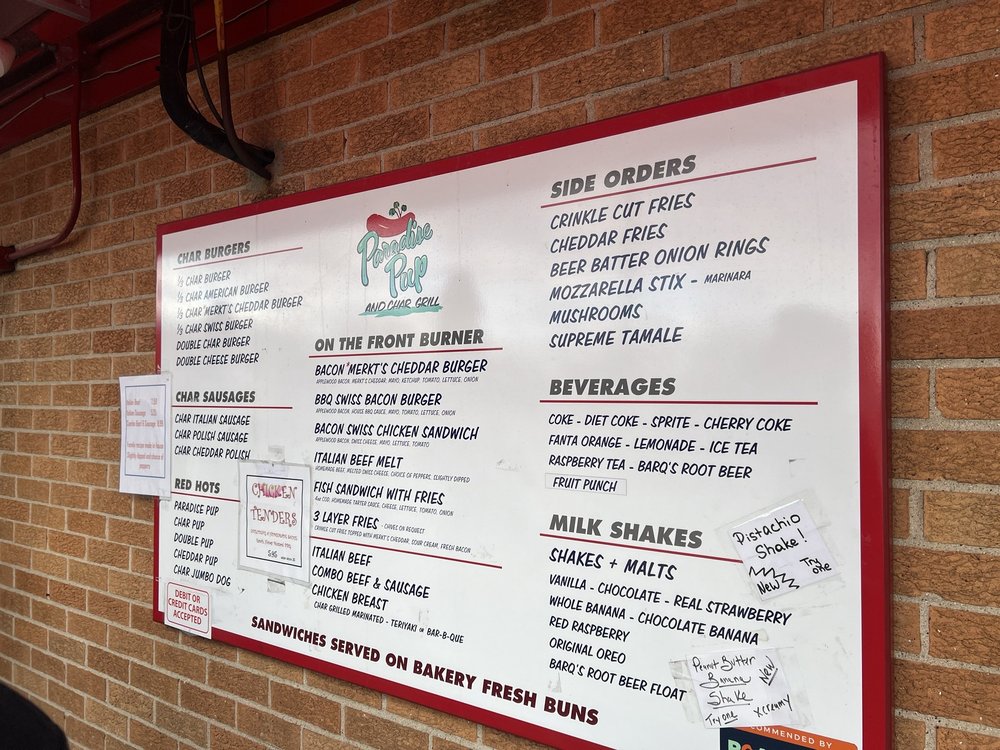 CHAR BURGERS
1/3 CHAR BURGER
1/3 CHAR AMERICAN BURGER
1/3 CHAR "MERKT'S CHEDDAR BURGER
1/3 CHAR SWISS BURGER
DOUBLE CHAR BURGER
DOUBLE CHEESE BURGER
CHAR SAUSAGES
CHAR ITALIAN SAUSAGE
CHAR POLISH SAUSAGE
CHAR CHEDDAR POLISH
RED HOTS
PARADISE PUP
CHAR PUP
DOUBLE PUP
CHEDDAR PUP
CHAR JUMBO DOG
DEBIT OR
CREDIT CARDS
ACCEPTED
Paradise
Pup
AND CHAR GRILL
ON THE FRONT BURNER
BACON "MERKT'S CHEDDAR BURGER
APPLEWOOD BACON, MERKT'S CHEDDAR, MAYO, KETCHUP, TOMATO, LETTUCE, ONION
BBQ SWISS BACON BURGER
APPLEWOOD BACON, HOUSE BBQ SAUCE, MAYO, TOMATO, LETTUCE, ONION
BACON SWISS CHICKEN SANDWICH
APPLEWOOD BACON, SWISS CHEESE, MAYO, LETTUCE, TOMATO
ITALIAN BEEF MELT
HOMEMADE BEEF, MELTED SWISS CHEESE, CHOICE OF PEPPERS, SLIGHTLY DIPPED
FISH SANDWICH WITH FRIES
4oz COD, HOMEMADE TARTER SAUCE, CHEESE, LETTUCE, TOMATO, ONION
3 LAYER FRIES - CHIVES ON REQUEST
CRINKLE CUT FRIES TOPPED WITH MERKT'S CHEDDAR, SOUR CREAM, FRESH BACON
ITALIAN BEEF
COMBO BEEF & SAUSAGE
CHICKEN BREAST
CHAR GRILLED MARINATED - TERIYAKI OR BAR-B-QUE
CHICKEN
TENDERS
SANDWICHES SERVED ON BAKERY FRESH BUNS
SIDE ORDERS
CRINKLE CUT FRIES
CHEDDAR FRIES
BEER BATTER ONION RINGS
MOZZARELLA STIX - MARINARA
MUSHROOMS
SUPREME TAMALE
BEVERAGES
COKE - DIET COKE - SPRITE - CHERRY COKE
FANTA ORANGE - LEMONADE - ICE TEA
RASPBERRY TEA - BARQ'S ROOT BEER
FRUIT PUNCH
MILK SHAKES
SHAKES + MALTS
VANILLA - CHOCOLATE - REAL STRAWBERRY
WHOLE BANANA - CHOCOLATE BANANA
RED RASPBERRY
ORIGINAL OREO
BARQ'S ROOT BEER FLOAT
Pistachio
Shake!
New
Try
one
Peanut Butter
Banana
Shake
New
Try one
X creamy
RECOMMENDED BY